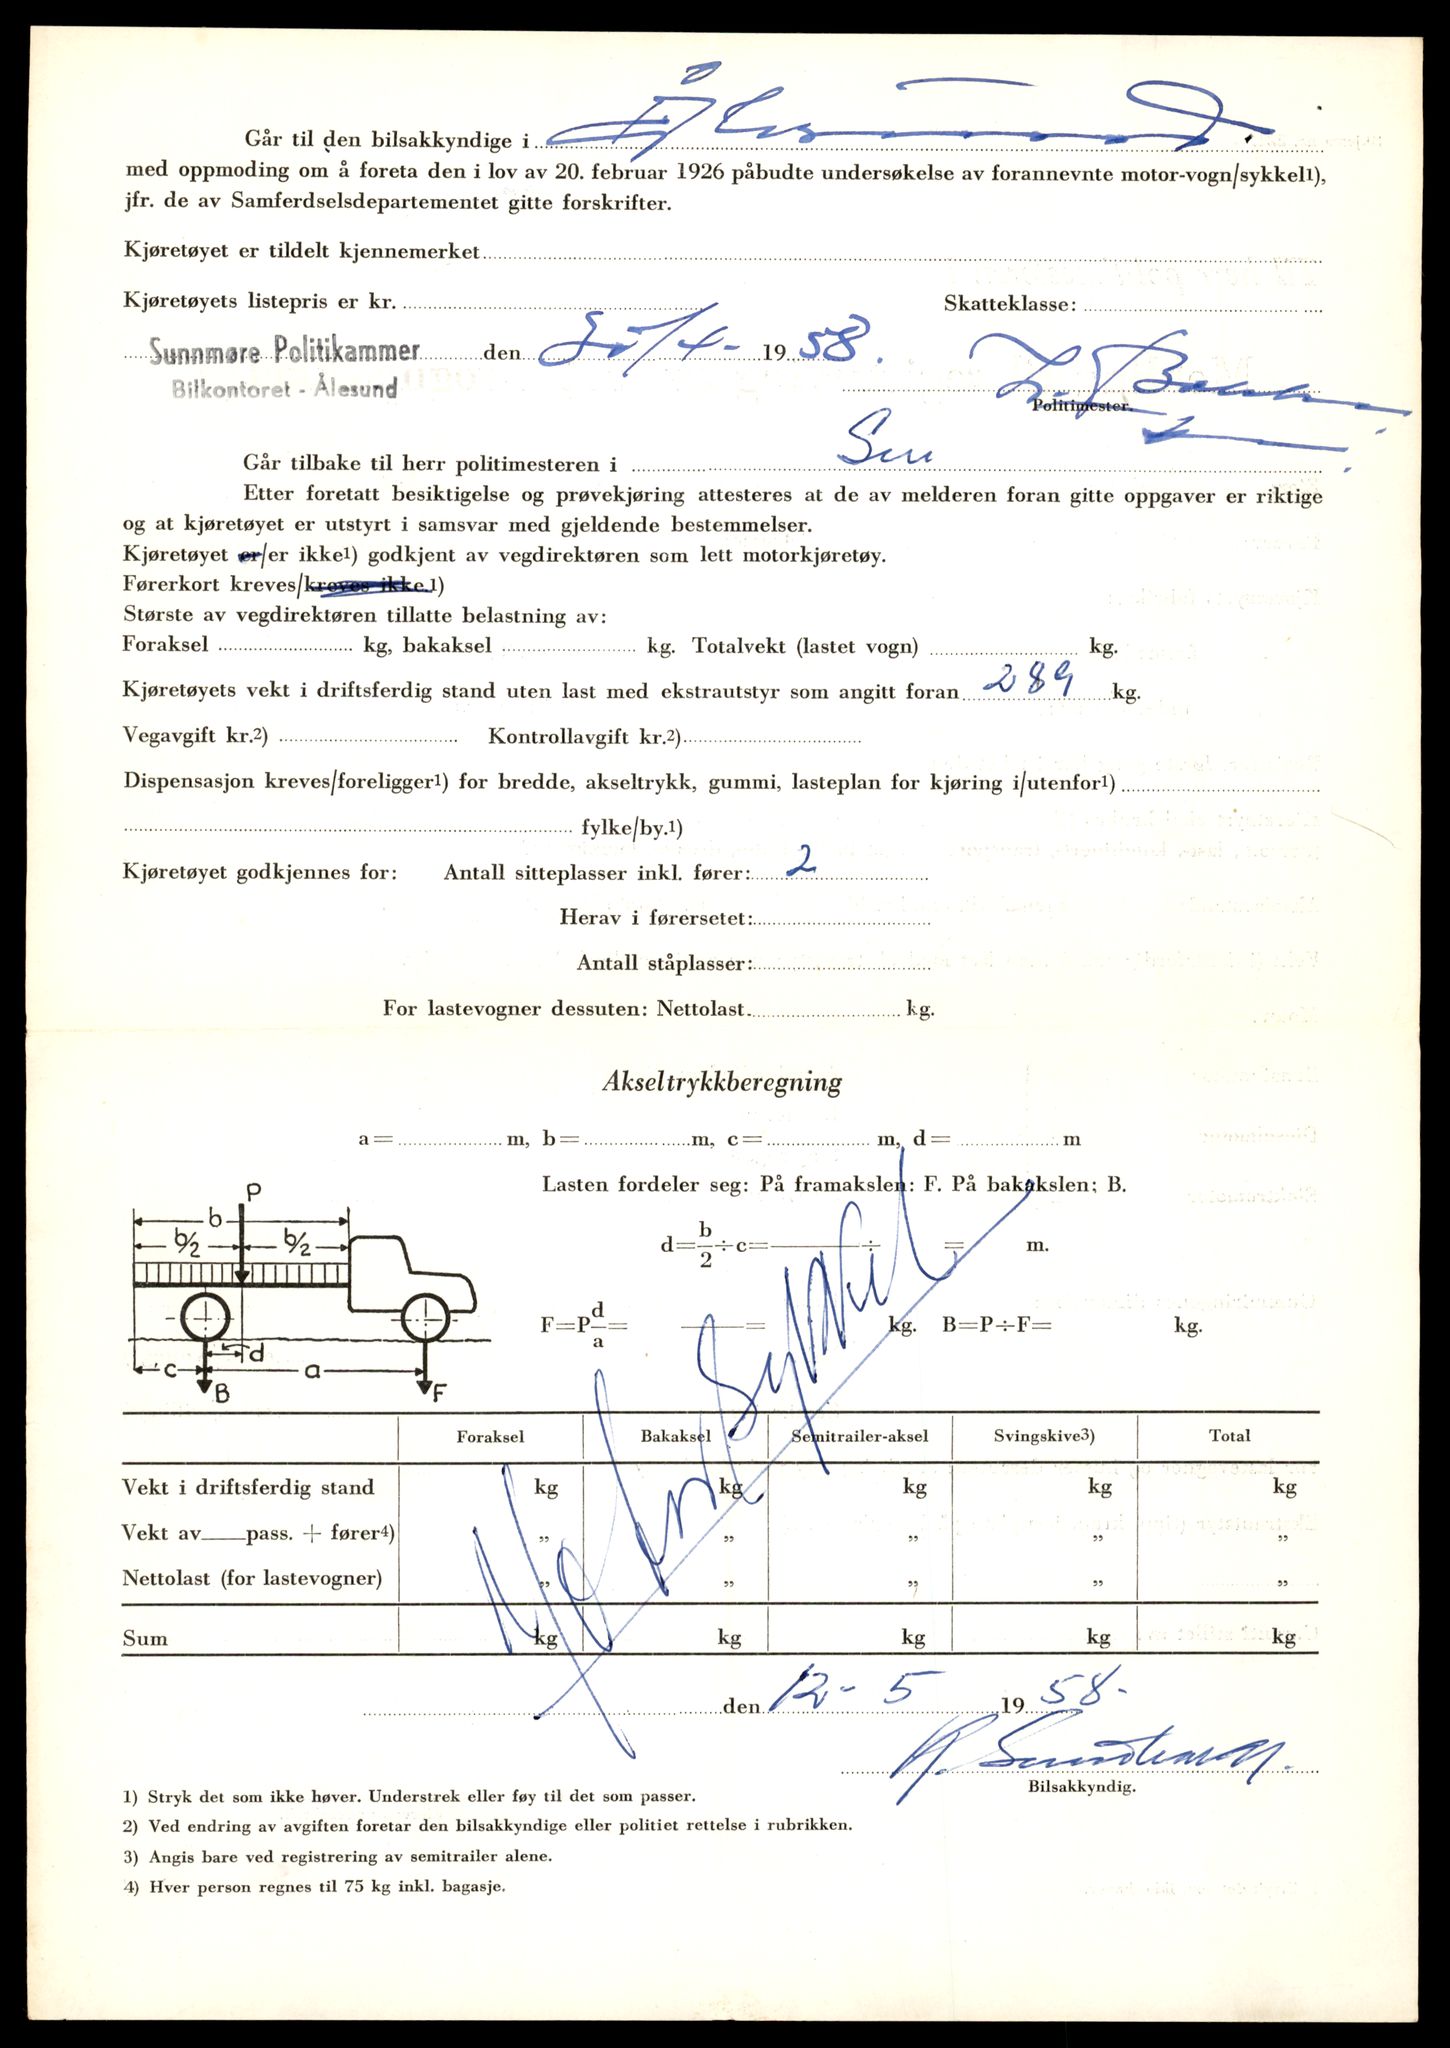 Går til den bilsakkyndige i Ålesund
med oppmoding om å foreta den i lov av 20. februar 1926 påbudte undersøkelse av forannevnte motor-vogn/sykkel1),
jfr. de av Samferdselsdepartementet gitte forskrifter.
Kjøretøyet er tildelt kjennemerket
Kjøretøyets listepris er kr. Skatteklasse:
Sunnmøre Politikammer den /4- 1958.
Bilkontoret - Ålesund
Politimester.
Går tilbake til herr politimesteren i
Etter foretatt besiktigelse og prøvekjøring attesteres at de av melderen foran gitte oppgaver er riktige
og at kjøretøyet er utstyrt i samsvar med gjeldende bestemmelser.
Kjøretøyet er/er ikke1) godkjent av vegdirektøren som lett motorkjøretøy.
Førerkort kreves/kreves ikke.1)
Største av vegdirektøren tillatte belastning av:
Foraksel kg, bakaksel kg. Totalvekt (lastet vogn) kg.
Kjøretøyets vekt i driftsferdig stand uten last med ekstrautstyr som angitt foran 289 kg.
Vegavgift kr.2) Kontrollavgift kr.2)
Dispensasjon kreves/foreligger1) for bredde, akseltrykk, gummi, lasteplan for kjøring i/utenfor1)
fylke/by.1)
Kjøretøyet godkjennes for: Antall sitteplasser inkl. fører: 2
Herav i førersetet:
Antall ståplasser:
For lastevogner dessuten: Nettolast kg.
Akseltrykkberegning
a = m, b = m, c = m, d = m
Lasten fordeler seg: På framakslen: F. På bakakslen; B.
P
b
b/2 b/2
d = b/2 ÷ c = ÷ = m.
F = P d/a = = kg. B = P ÷ F = kg.
c d a
B F
Foraksel Bakaksel Semitrailer-aksel Svingskive3) Total
Vekt i driftsferdig stand kg kg kg kg kg
Vekt av pass. + fører4) „ „ „ „ „
Nettolast (for lastevogner) „ „ „ „ „
Sum kg kg kg kg kg
Motorsykkel
den 12-5 1958-
Bilsakkyndig.
1) Stryk det som ikke høver. Understrek eller føy til det som passer.
2) Ved endring av avgiften foretar den bilsakkyndige eller politiet rettelse i rubrikken.
3) Angis bare ved registrering av semitrailer alene.
4) Hver person regnes til 75 kg inkl. bagasje.